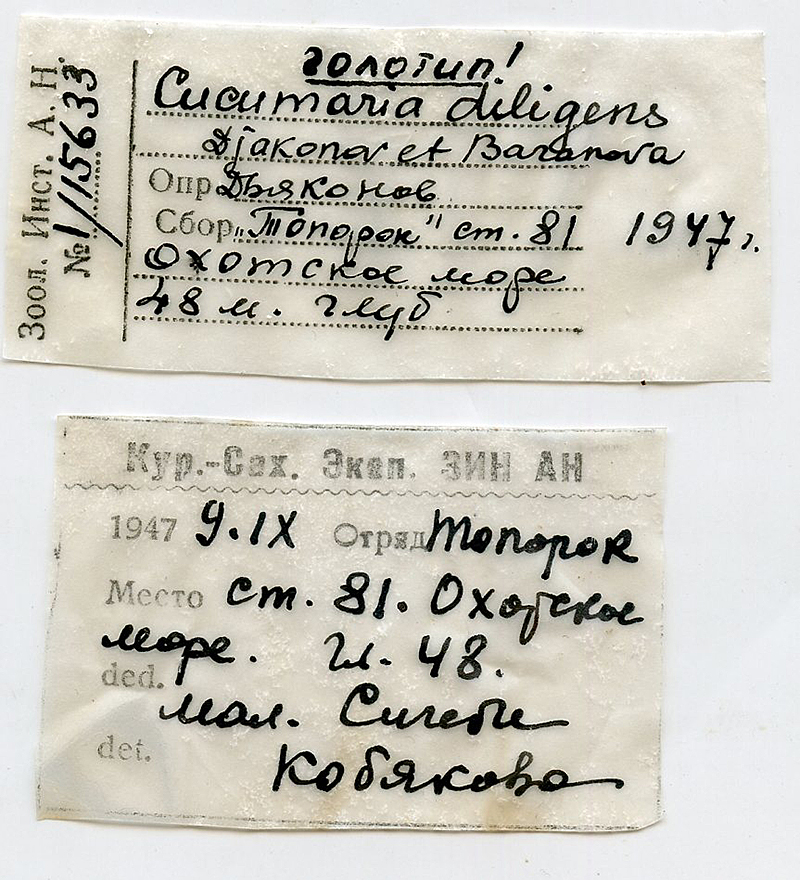 Зоол. Инст. А. Н.
№ 1/15633
голотип!
Cucumaria diligens
Djakonov et Baranova
Опр. Дьяконов
Сбор. „Топорок" ст. 81 1947 г.
Охотское море
48 м. глуб
Кур.-Сах. Эксп. ЗИН АН
1947 9.IX Отряд Топорок
Место ст. 81. Охотское
море. гл. 48.
ded.
мал. Сигсби
det.
Кобякова